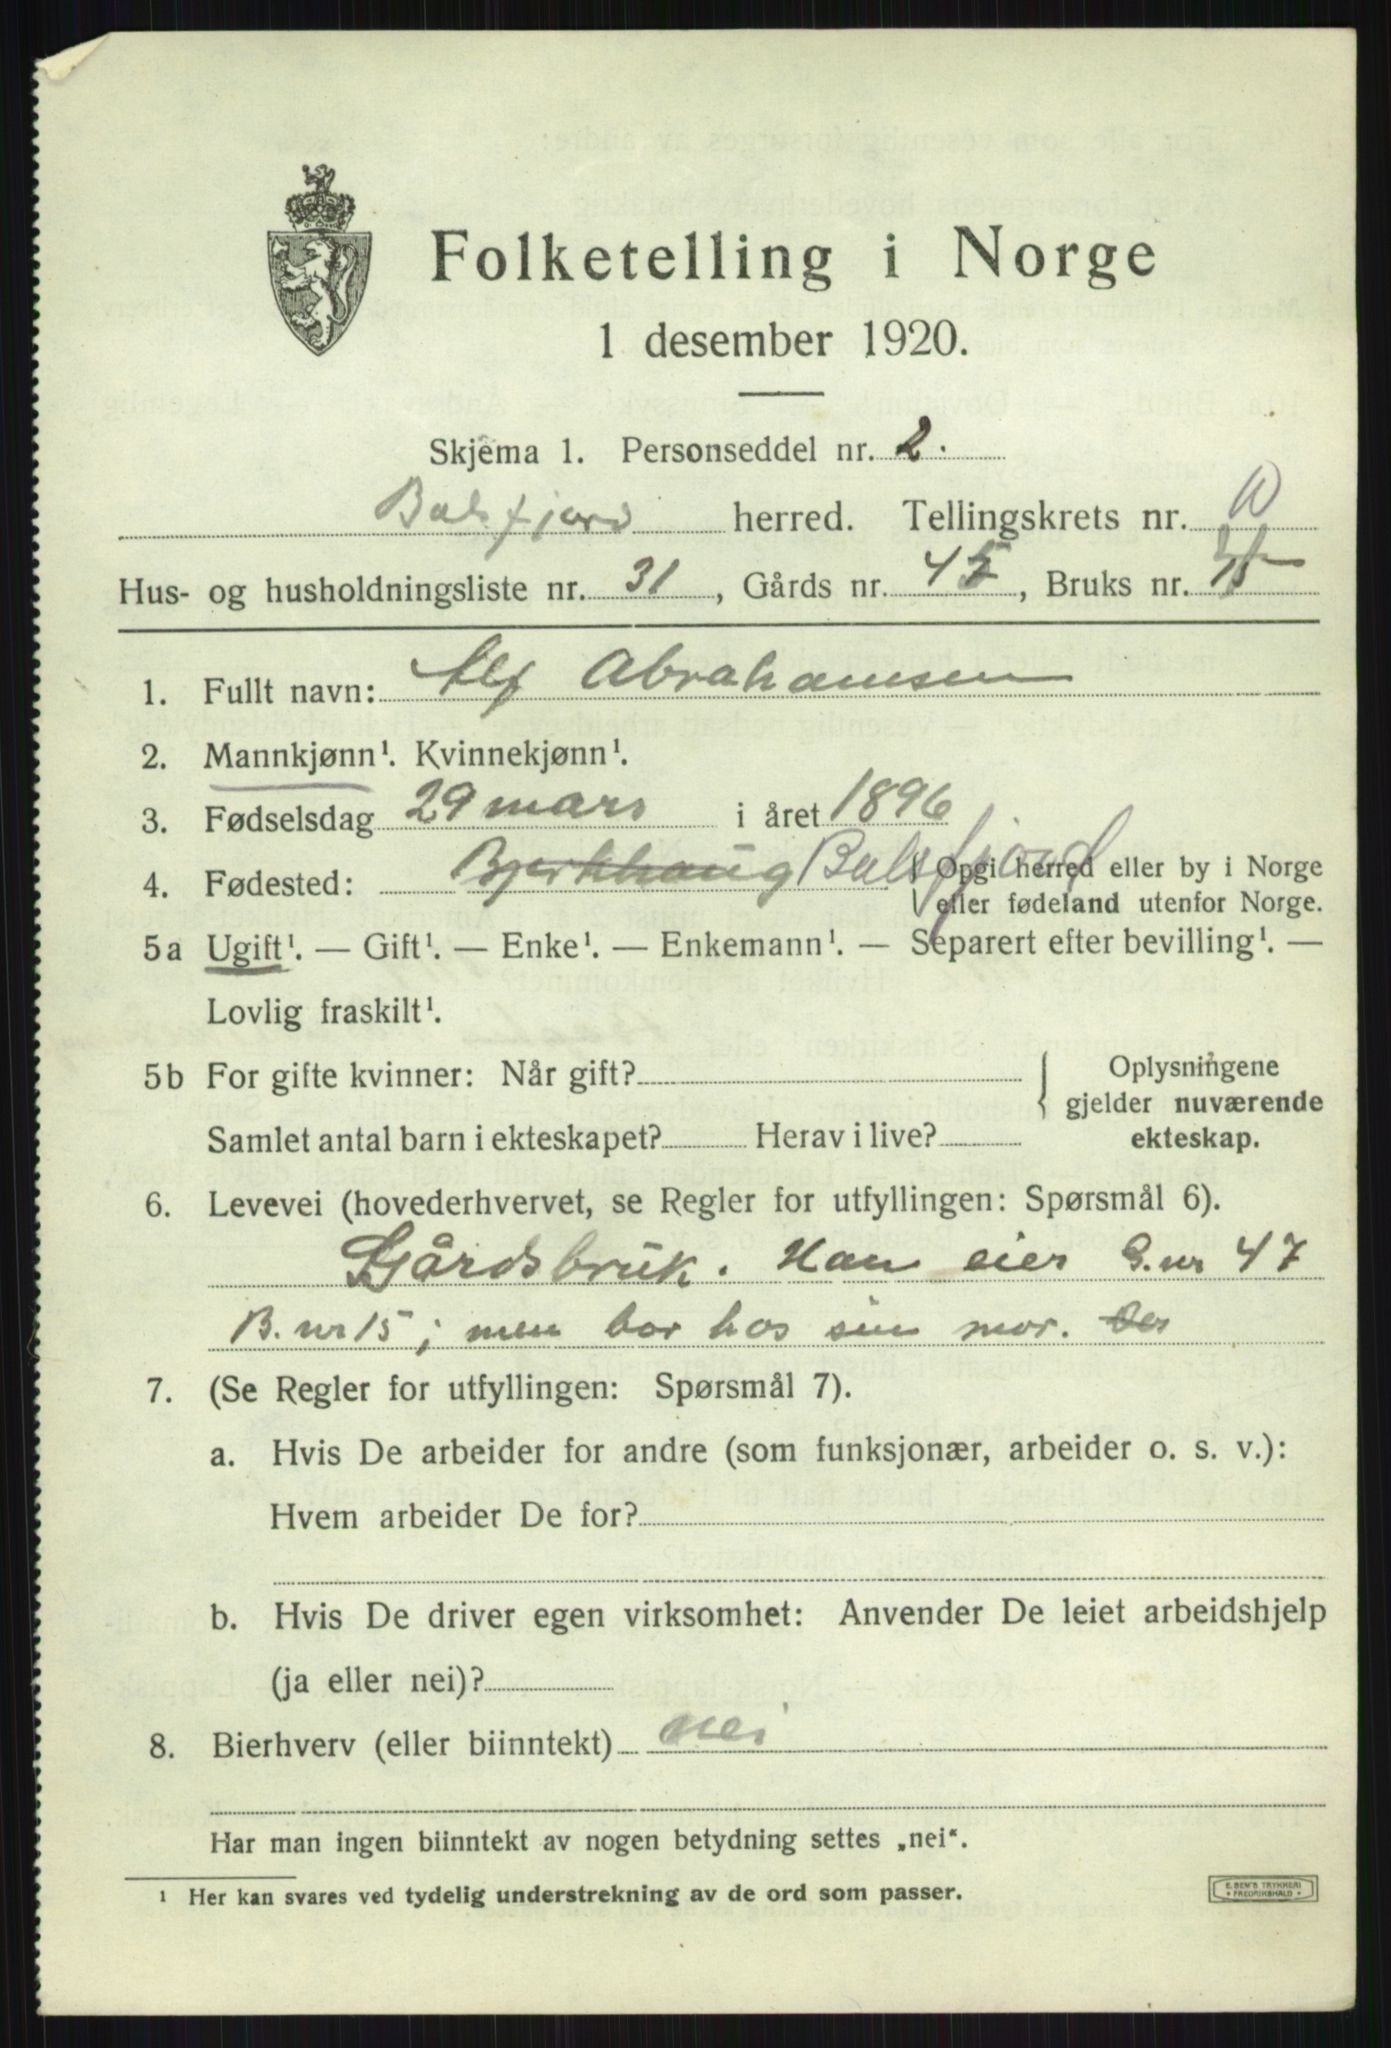 Folketelling i Norge
1 desember 1920.
Skjema 1. Personseddel nr. 2.
Balsfjord herred. Tellingskrets nr.
Hus- og husholdningsliste nr. 31, Gårds nr. 45, Bruks nr.
1. Fullt navn: Alf Abrahamsen
2. Mannkjønn¹. Kvinnekjønn¹.
3. Fødselsdag 29 mars i året 1896
4. Fødested: Bjerkhaug Balsfjord Opgi herred eller by i Norge
eller fødeland utenfor Norge.
5a Ugift¹. — Gift¹. — Enke¹. — Enkemann¹. — Separert efter bevilling¹. —
Lovlig fraskilt¹.
5b For gifte kvinner: Når gift? Oplysningene
gjelder nuværende
Samlet antal barn i ekteskapet? Herav i live? ekteskap.
6. Levevei (hovederhvervet, se Regler for utfyllingen: Spørsmål 6).
Gårdsbruk. Han eier G.nr 47
B.nr 15; men bor hos sin mor.
7. (Se Regler for utfyllingen: Spørsmål 7).
a. Hvis De arbeider for andre (som funksjonær, arbeider o. s. v.):
Hvem arbeider De for?
b. Hvis De driver egen virksomhet: Anvender De leiet arbeidshjelp
(ja eller nei)?
8. Bierhverv (eller biinntekt) nei
Har man ingen biinntekt av nogen betydning settes „nei“.
¹ Her kan svares ved tydelig understrekning av de ord som passer.
E. SEM'S TRYKKERI
FREDRIKSHALD